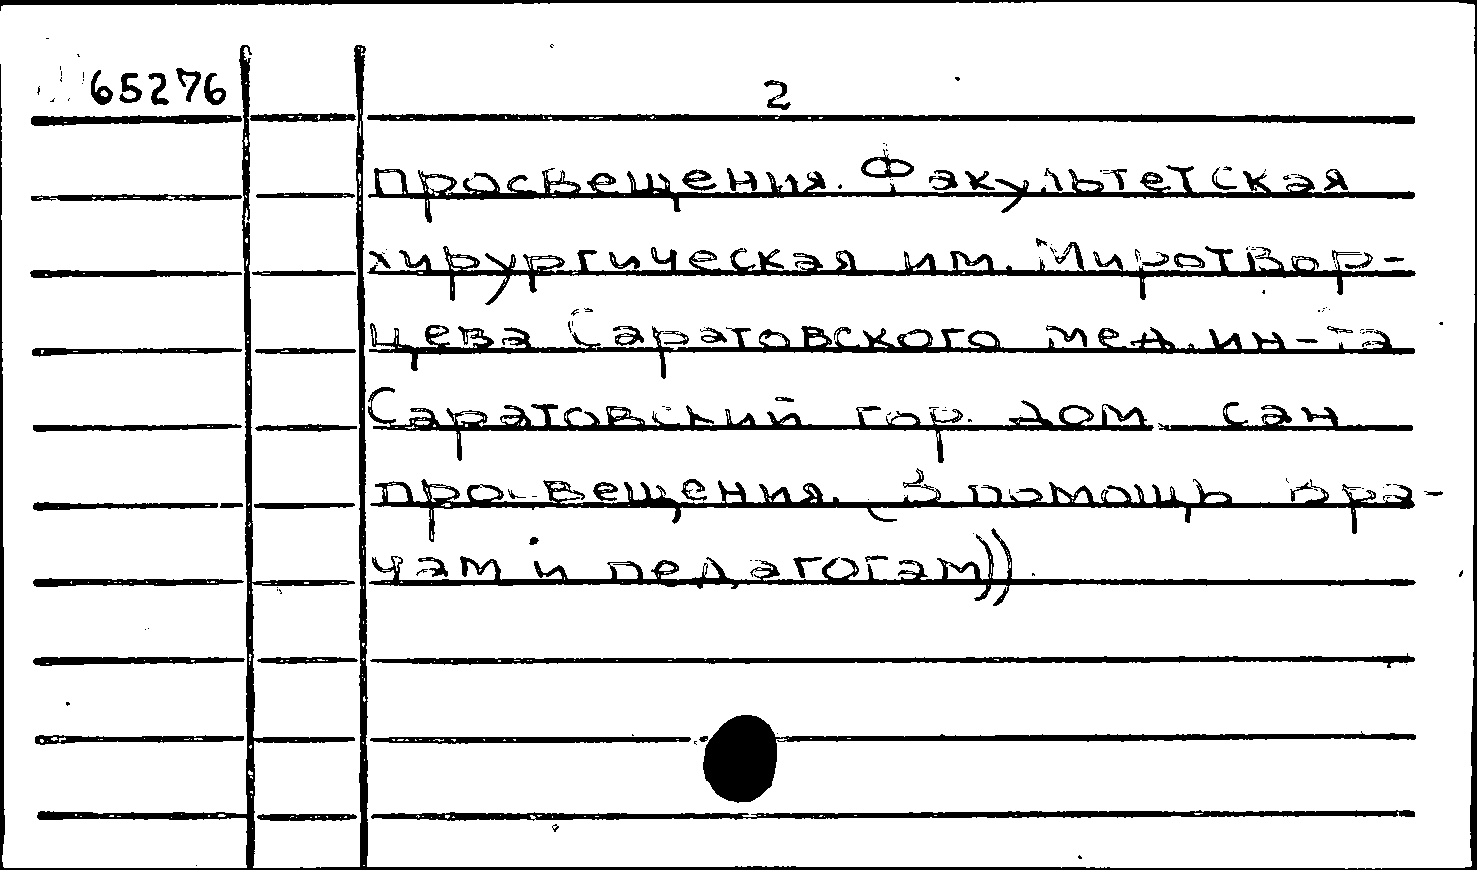 65276
2
просвещения. Факультетская
хирургическая им. Миротвор-
цева Саратовского мед. ин-та
Саратовский гор. дом. сан
просвещения. В помощь вра-
чам и педагогам))